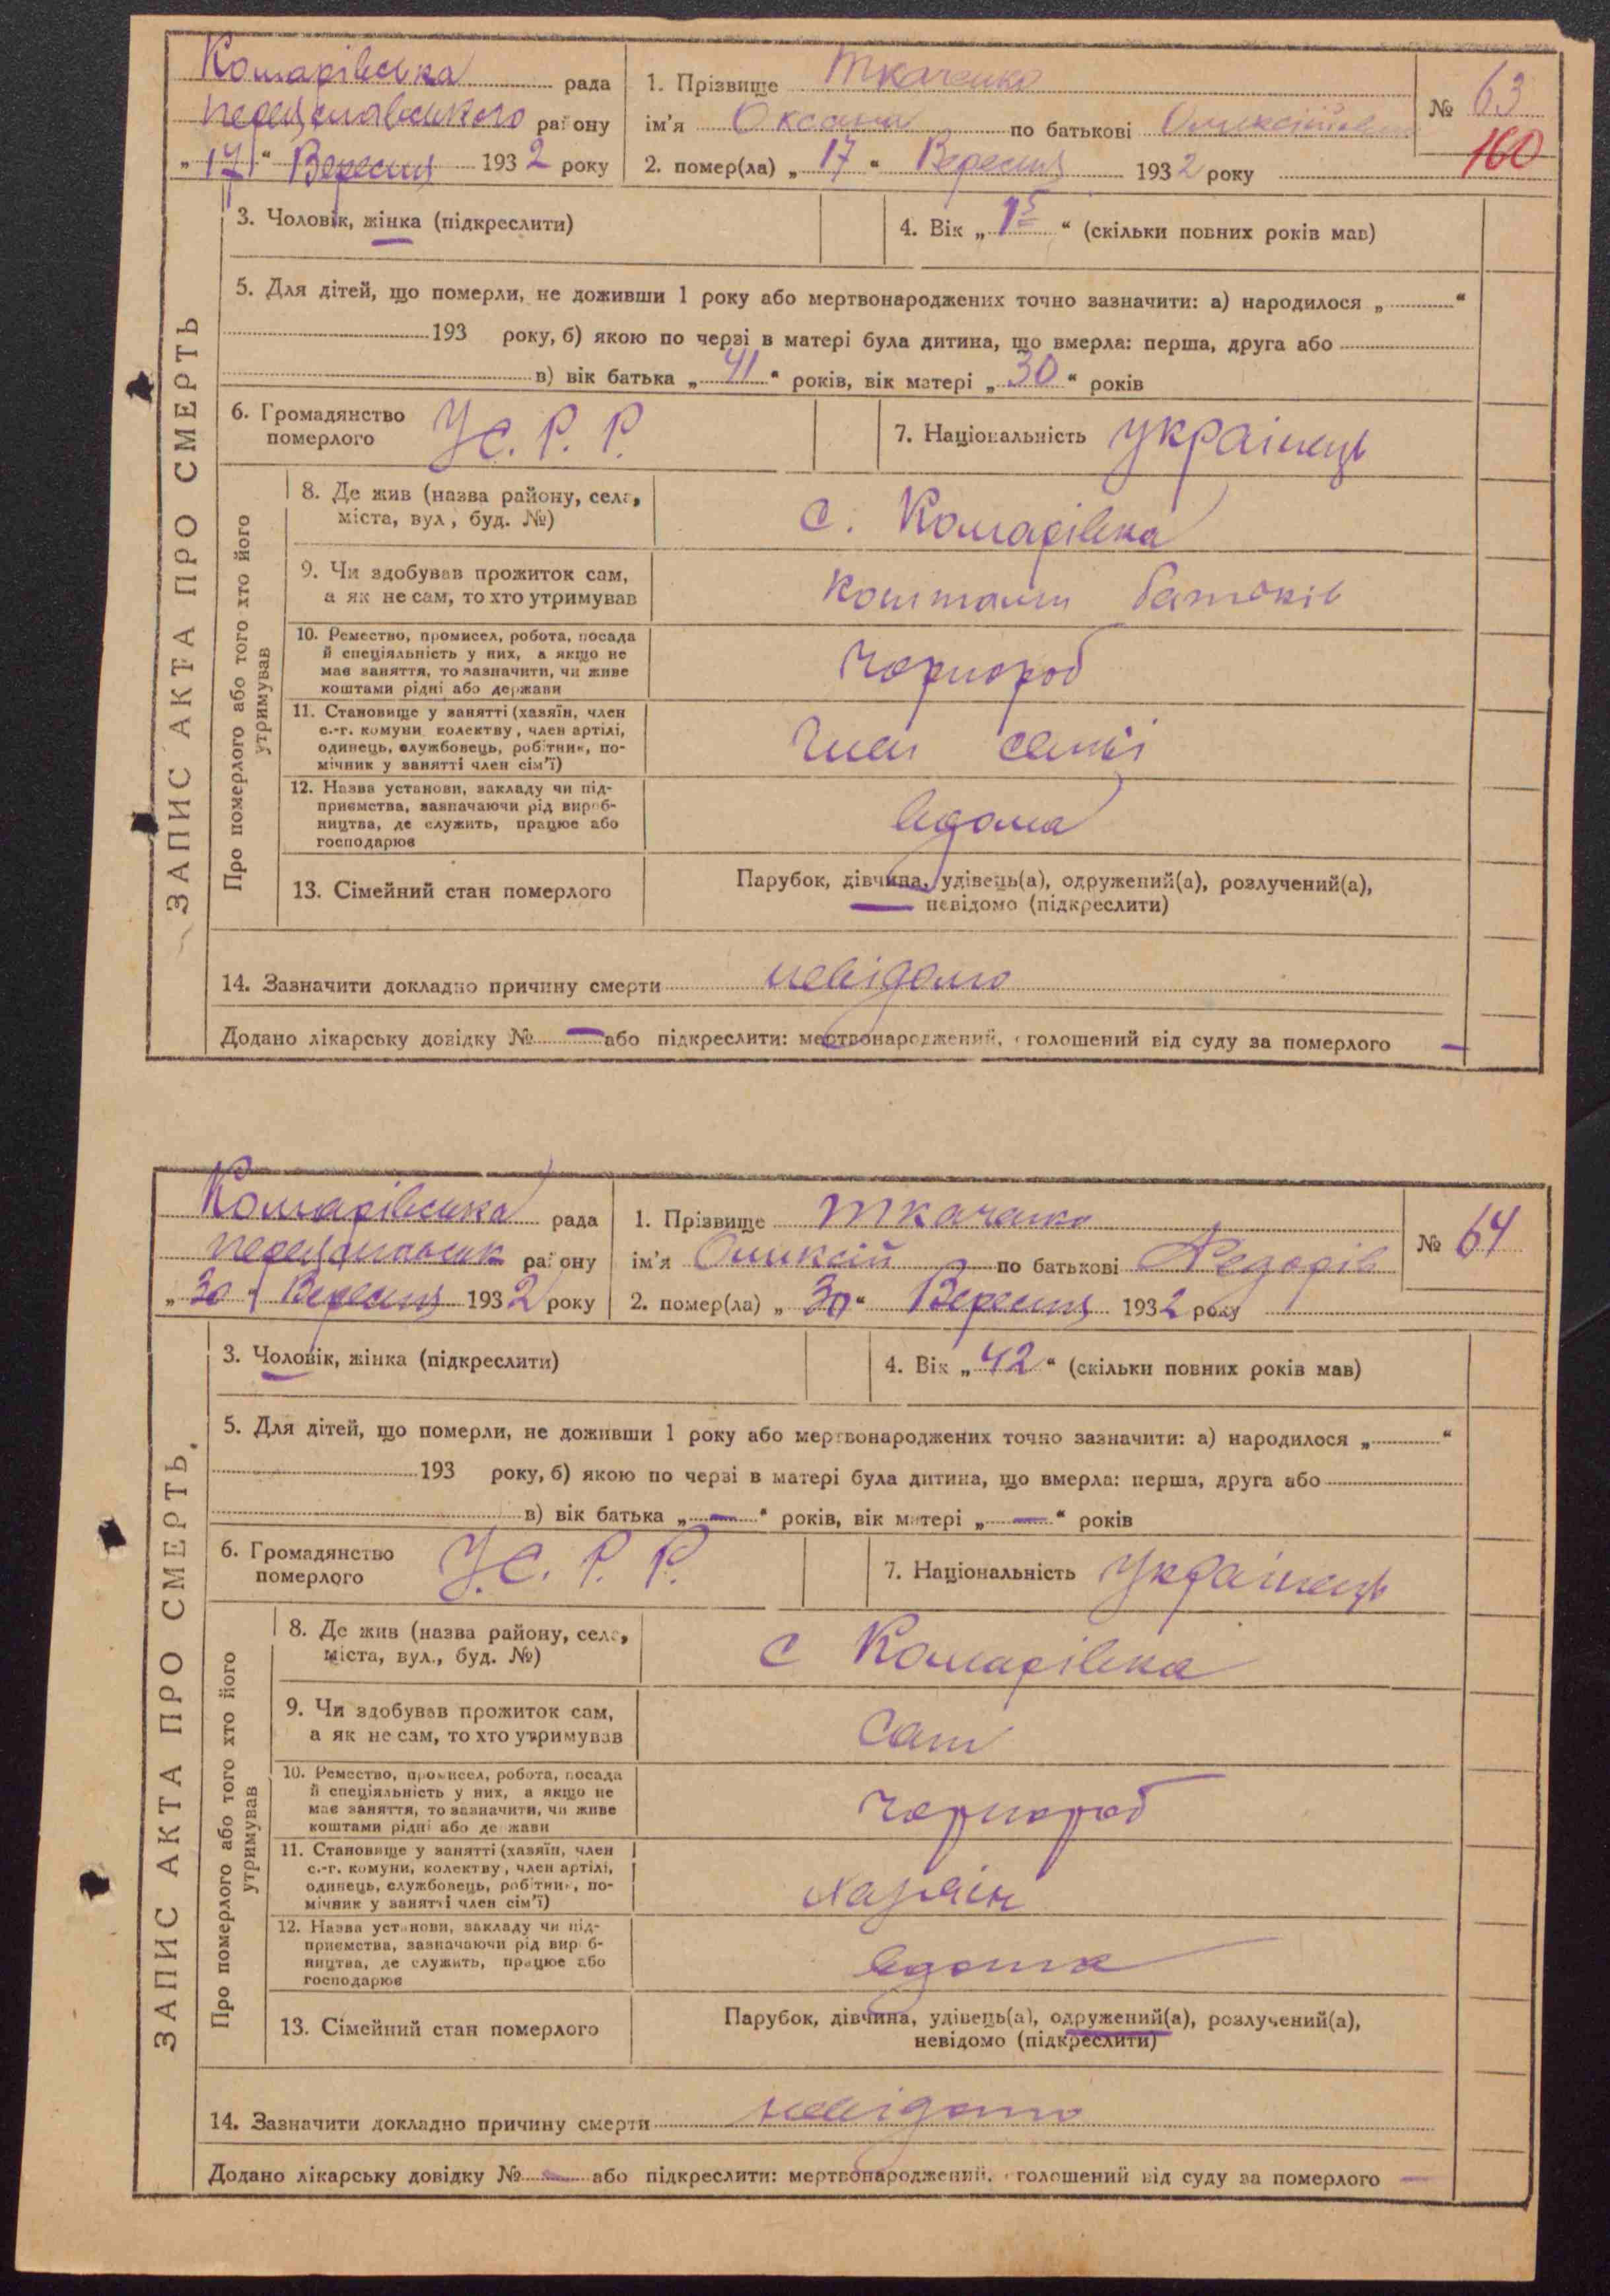 Комарівська рада
Переяславського району
„17“ Вересня 1932 року
1. Прізвище Ткаченко
ім'я Оксана по батькові Олексіївна
2. помер(ла) „17“ Вересня 1932 року
№ 63
160
ЗАПИС АКТА ПРО СМЕРТЬ
3. Чоловік, жінка (підкреслити)
4. Вік „ “ (скільки повних років мав)
5. Для дітей, що померли, не доживши 1 року або мертвонароджених точно зазначити: а) народилося „ “
193 року, б) якою по черзі в матері була дитина, що вмерла: перша, друга або
в) вік батька „41“ років, вік матері „30“ років
6. Громадянство
померлого
У.С.Р.Р.
7. Національність українець
Про померлого або того хто його
утримував
8. Де жив (назва району, села,
міста, вул, буд. №)
с. Комарівка
9. Чи здобував прожиток сам,
а як не сам, то хто утримував
коштами батьків
10. Ремество, промисел, робота, посада
й спеціяльність у них, а якщо не
має заняття, то зазначити, чи живе
коштами рідні або держави
чорнороб
11. Становище у занятті (хазяїн, член
с.-г. комуни колектву, член артілі,
одинець, службовець, робітник, по-
мічник у занятті член сім'ї)
член семьі
12. Назва установи, закладу чи під-
приємства, зазначаючи рід вироб-
ництва, де служить, працює або
господарює
вдома
13. Сімейний стан померлого
Парубок, дівчина, удівець(а), одружений(а), розлучений(а),
невідомо (підкреслити)
14. Зазначити докладно причину смерти невідомо
Додано лікарську довідку № — або підкреслити: мертвонароджений, голошений від суду за померлого —
Комарівська рада
Переяславськ району
„30“ Вересня 1932 року
1. Прізвище Ткаченко
ім'я Оликсій по батькові Федорів
2. помер(ла) „30“ Вересня 1932 року
№ 64
ЗАПИС АКТА ПРО СМЕРТЬ.
3. Чоловік, жінка (підкреслити)
4. Вік „42“ (скільки повних років мав)
5. Для дітей, що померли, не доживши 1 року або мертвонароджених точно зазначити: а) народилося „ “
193 року, б) якою по черзі в матері була дитина, що вмерла: перша, друга або
в) вік батька „—“ років, вік матері „—“ років
6. Громадянство
померлого
У.С.Р.Р.
7. Національність Українець
Про померлого або того хто його
утримував
8. Де жив (назва району, села,
міста, вул., буд. №)
с Комарівка
9. Чи здобував прожиток сам,
а як не сам, то хто утримував
сам
10. Ремество, промисел, робота, посада
й спеціяльність у них, а якщо не
має заняття, то зазначити, чи живе
коштами рідні або держави
чорнороб
11. Становище у занятті (хазяїн, член
с.-г. комуни, колектву, член артілі,
одинець, службовець, робітник, по-
мічник у занятті член сім'ї)
хазяін
12. Назва установи, закладу чи під-
приємства, зазначаючи рід вироб-
ництва, де служить, працює або
господарює
вдома
13. Сімейний стан померлого
Парубок, дівчина, удівець(а), одружений(а), розлучений(а),
невідомо (підкреслити)
14. Зазначити докладно причину смерти невідомо
Додано лікарську довідку № — або підкреслити: мертвонароджений, голошений від суду за померлого —